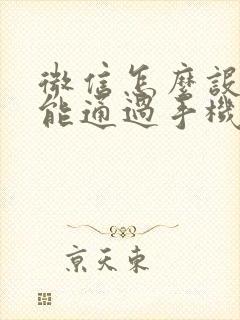 微信怎麼設
能通過手機
京天東